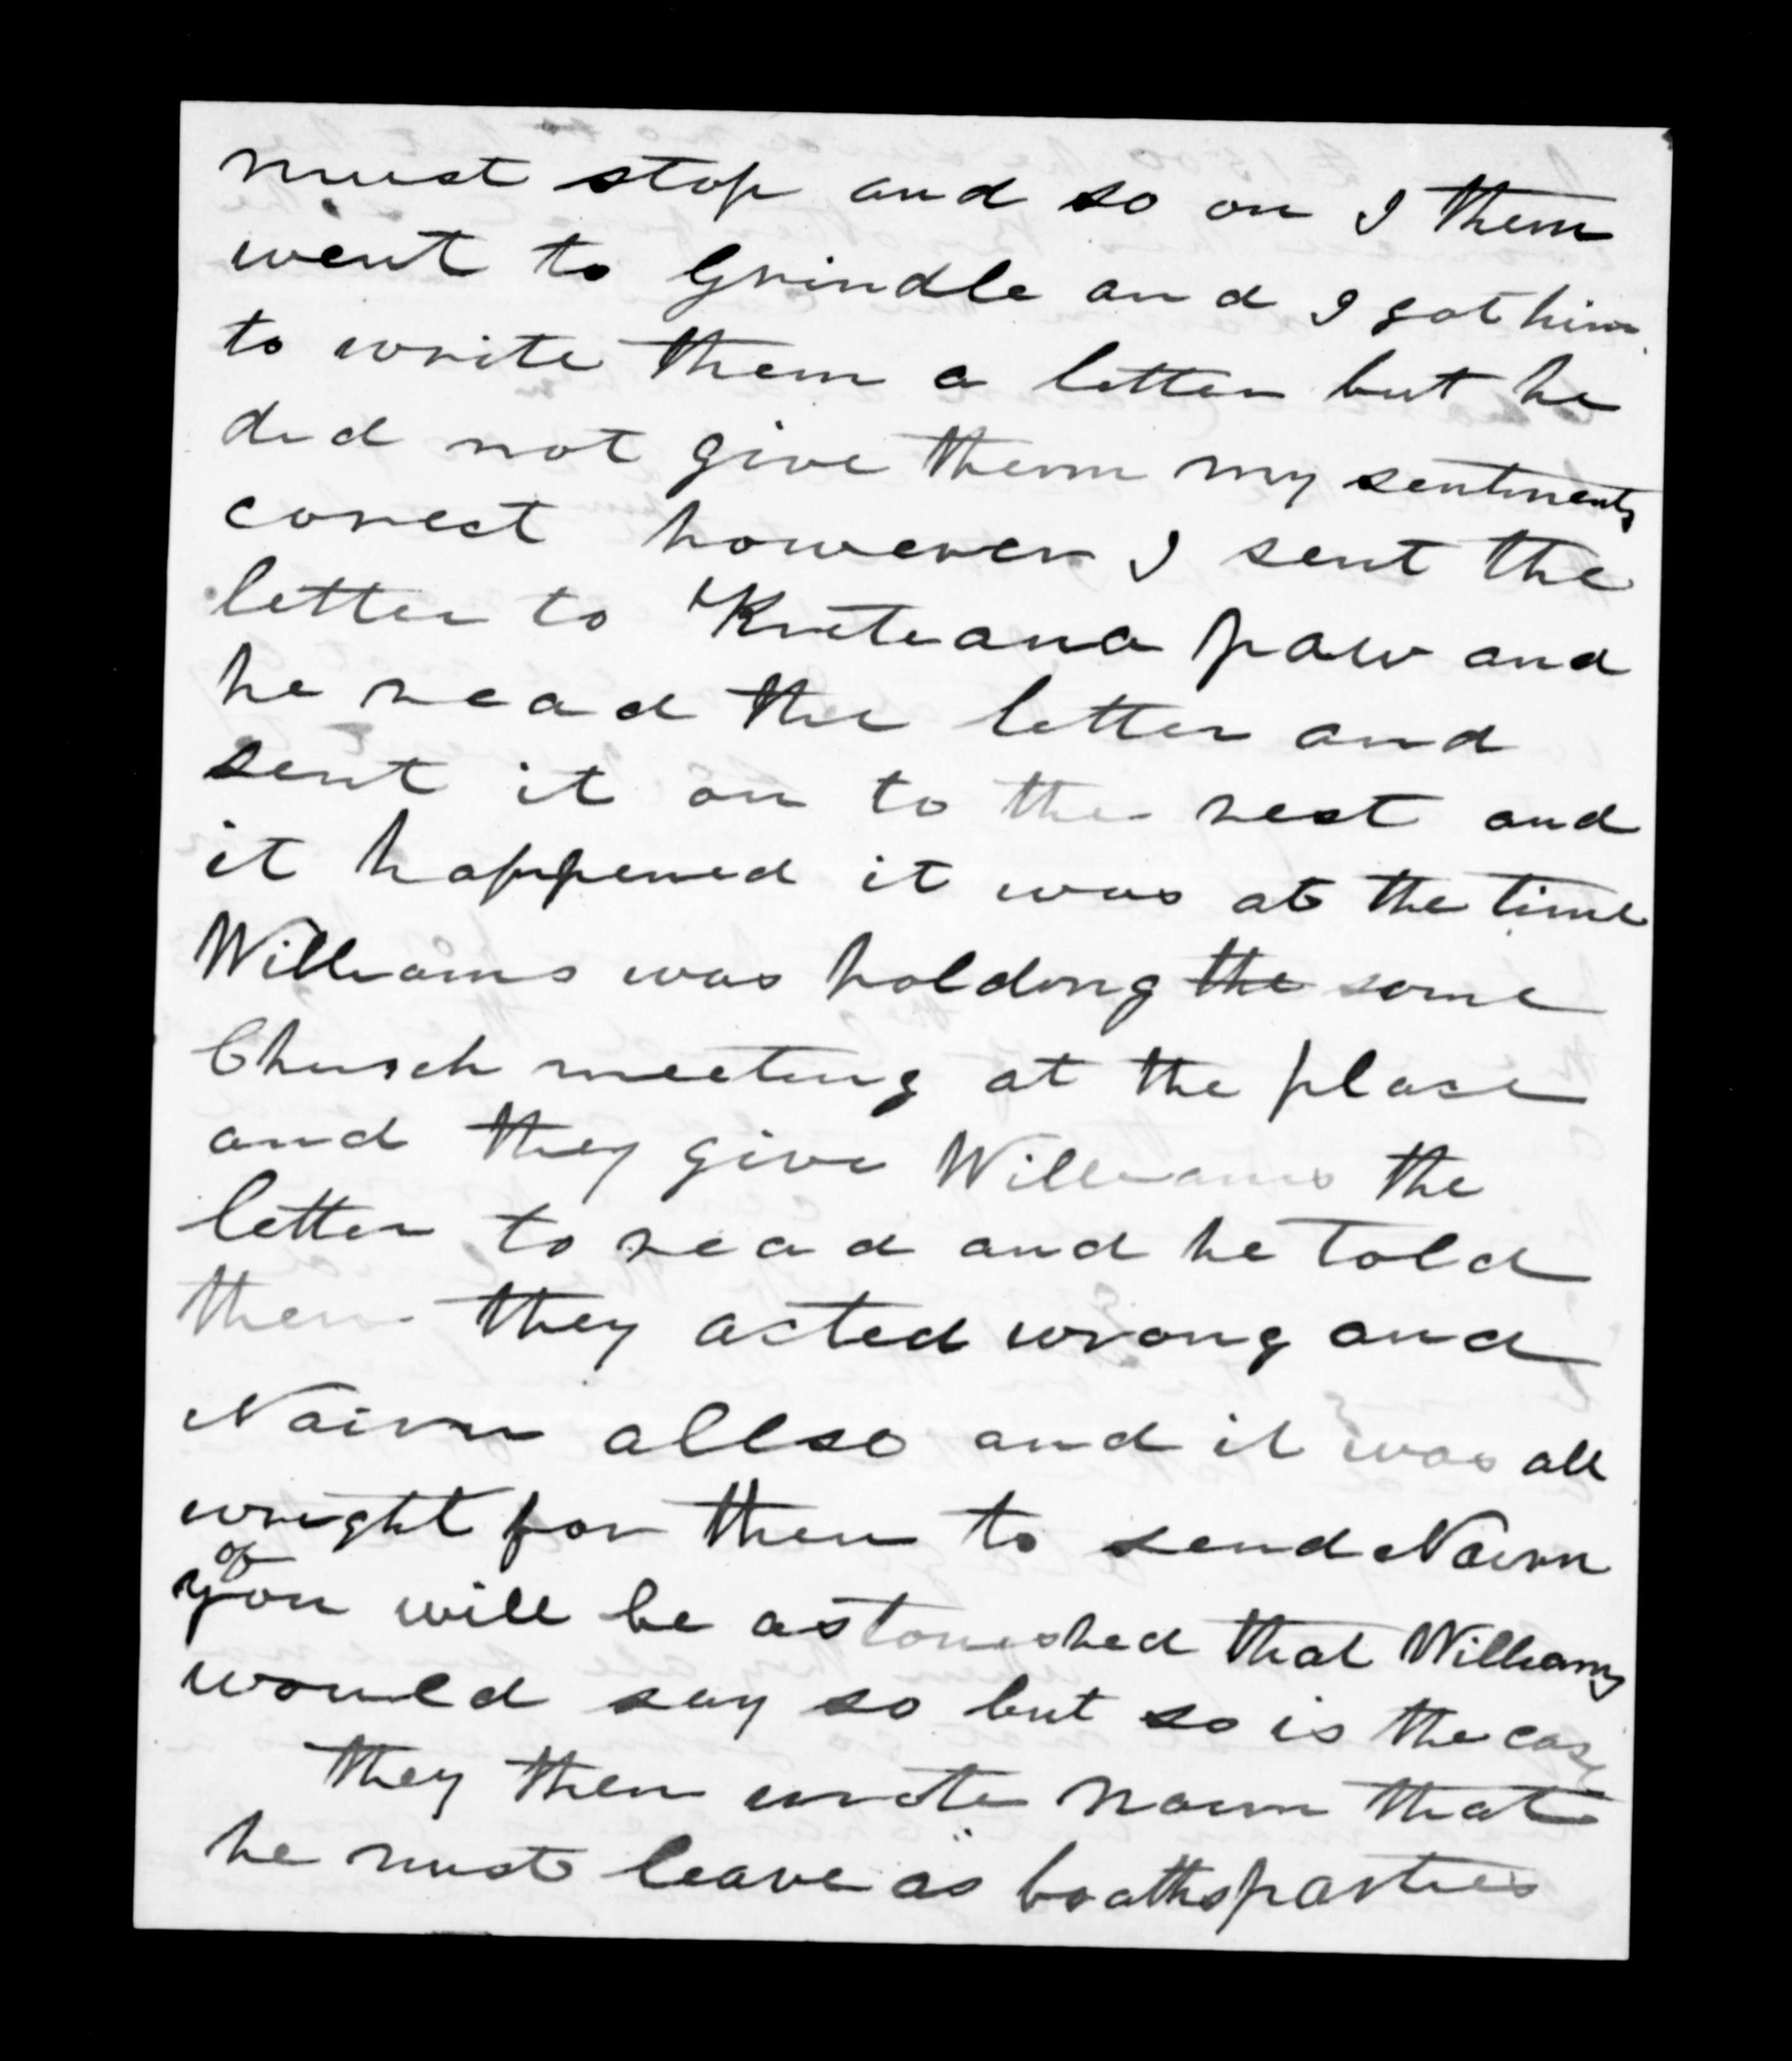 must stop and so on I them
went to Grindle and I got him
to write them a letter but he
did not give them my sentiments
corect however I sent the
letter to Kuteana paw and
he read the letter and
sent it on to the rest and
it happened it was at the time
Williams was holding the some
Church meeting at the plase
and they give Williams the
letter to read and he told
them they acted wrong and
Nairn allso and it was all
wright for them to send Nairn
of
you will be astoneshed that Williams
would say so but so is the case
they then wrote Nairn that
he must leave as boaths parties